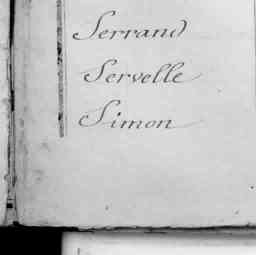 Serrand
Servelle
Simon